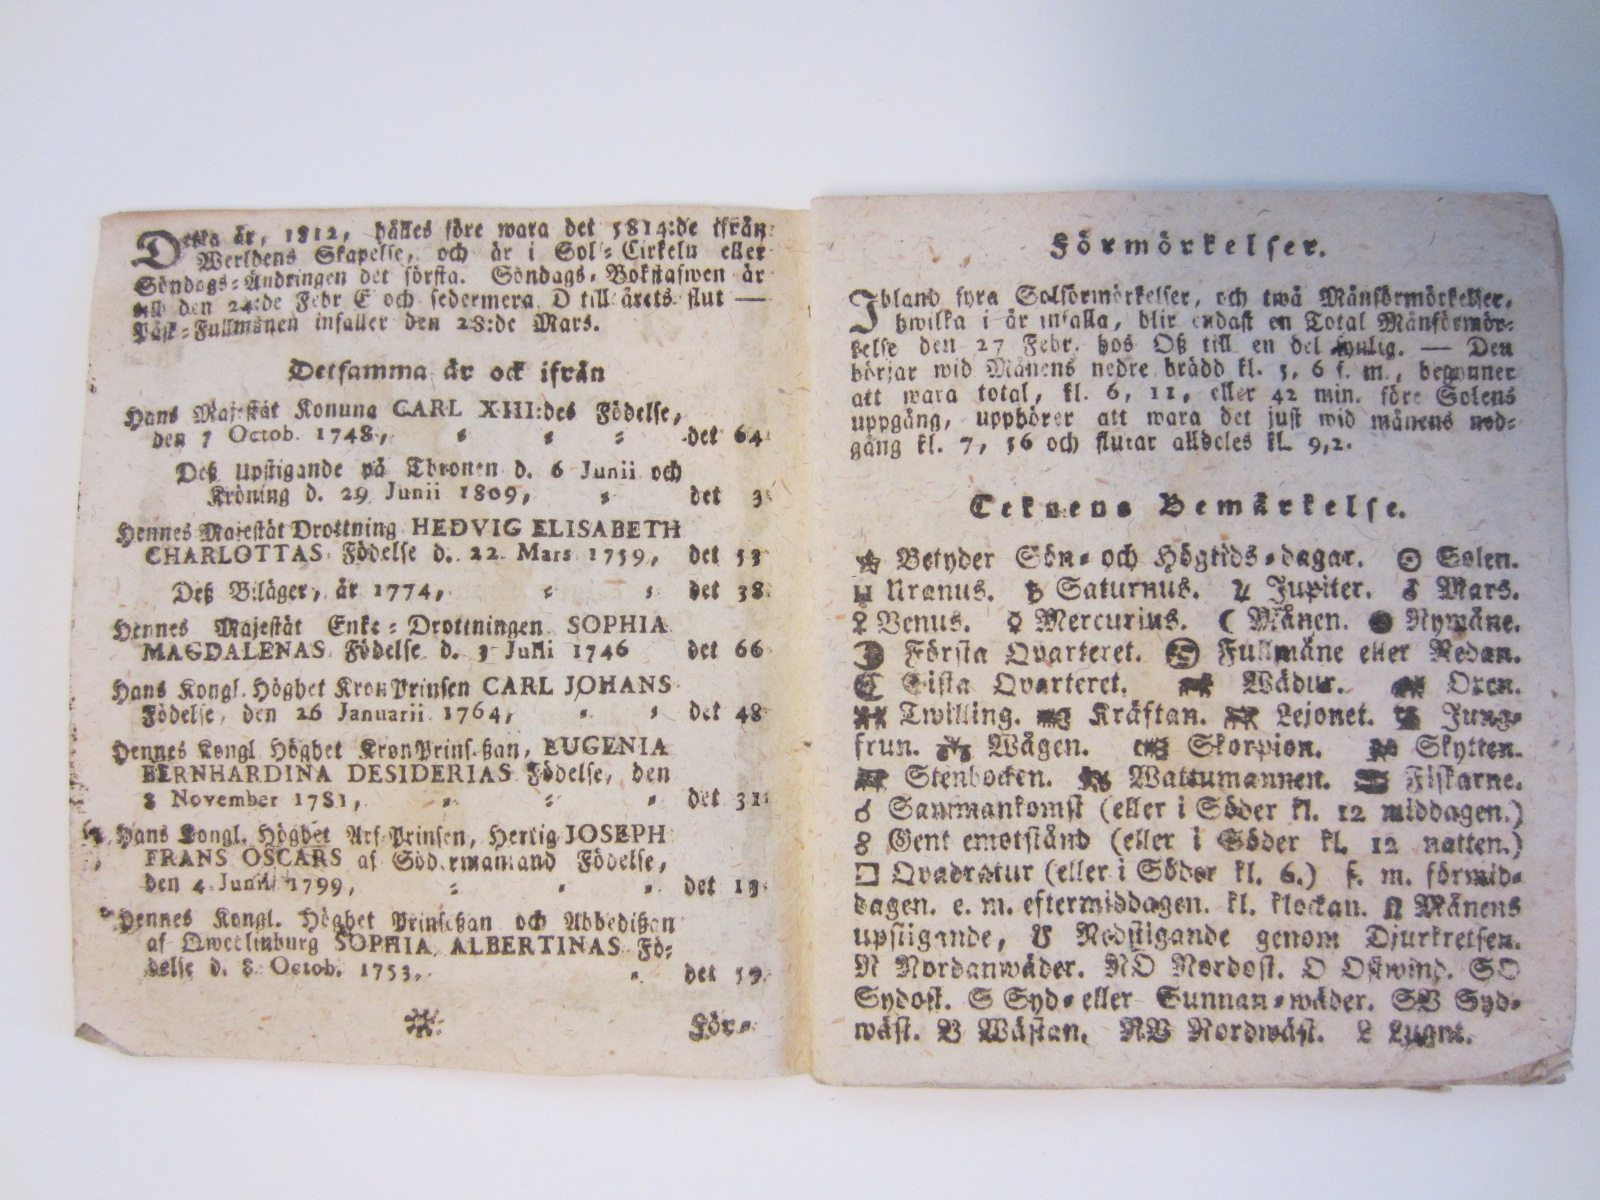 Detta år, 1812, hålles före wara det 5814:de ifrån
Werldens Skapelse, och är i Sol-Cirkeln eller
Söndags-Ändringen det första. Söndags-Bokstafwen är
till den 24:de Febr E och sedermera D till årets slut —
Påsk-Fullmånen infaller den 28:de Mars.
Detsamma är ock ifrån
Hans Majestät Konung CARL XIII:des Födelse,
den 7 Octob. 1748, det 64
Deß Upstigande på Thronen d. 6 Junii och
Kröning d. 29 Junii 1809, det 3
Hennes Majestät Drottning HEDVIG ELISABETH
CHARLOTTAS Födelse d. 22 Mars 1759, det 53
Deß Biläger, år 1774, det 38
Hennes Majestät Enke-Drottningen SOPHIA
MAGDALENAS Födelse d. 3 Julii 1746 det 66
Hans Kongl. Höghet KronPrinsen CARL JOHANS
Födelse, den 26 Januarii 1764, det 48
Hennes Kongl Höghet KronPrinseßan, EUGENIA
BERNHARDINA DESIDERIAS Födelse, den
8 November 1781, det 31
Hans Kongl. Höghet Arf-Prinsen, Hertig JOSEPH
FRANS OSCARS af Södermanland Födelse,
den 4 Julii 1799, det 13
Hennes Kongl. Höghet Prinseßan och Abbedißan
af Qwedlinburg SOPHIA ALBERTINAS Fö-
delse d. 8 Octob. 1753, det 59
För-
Förmörkelser.
Ibland fyra Solförmörkelser, och twå Månförmörkelser,
hwilka i år infalla, blir endast en Total Månförmör-
kelse den 27 Febr. hos Oß till en del synlig. — Den
börjar wid Månens nedre brädd kl. 5, 6 f. m., begynner
att wara total, kl. 6, 11, eller 42 min. före Solens
uppgång, upphörer att wara det just wid månens ned-
gång kl. 7, 56 och slutar alldeles kl. 9,2.
Teknens Bemärkelse.
☆ Betyder Sön- och Högtids-dagar. ☉ Solen.
♅ Uranus. ♄ Saturnus. ♃ Jupiter. ♂ Mars.
♀ Venus. ☿ Mercurius. ☾ Månen. ● Nymåne.
☽ Första Qvarteret. Fullmåne eller Nedan.
☾ Sista Qvarteret. Wädur. Oxen.
Twilling. Kräftan. Lejonet. Jung-
frun. Wågen. Skorpion. Skytten.
Stenbocken. Wattumannen. Fiskarne.
☌ Sammankomst (eller i Söder kl. 12 middagen.)
☍ Gent emotstånd (eller i Söder kl. 12 natten.)
□ Qvadratur (eller i Söder kl. 6.) f. m. förmid-
dagen. e. m. eftermiddagen. kl. klockan. ☊ Månens
upstigande, ☋ Nedstigande genom Djurkretsen.
N Nordanwäder. NO Nordost. O Ostwind. SO
Sydost. S Syd- eller Sunnan-wäder. SV Syd-
wäst. V Wästan. NV Nordwäst. L Lugnt.